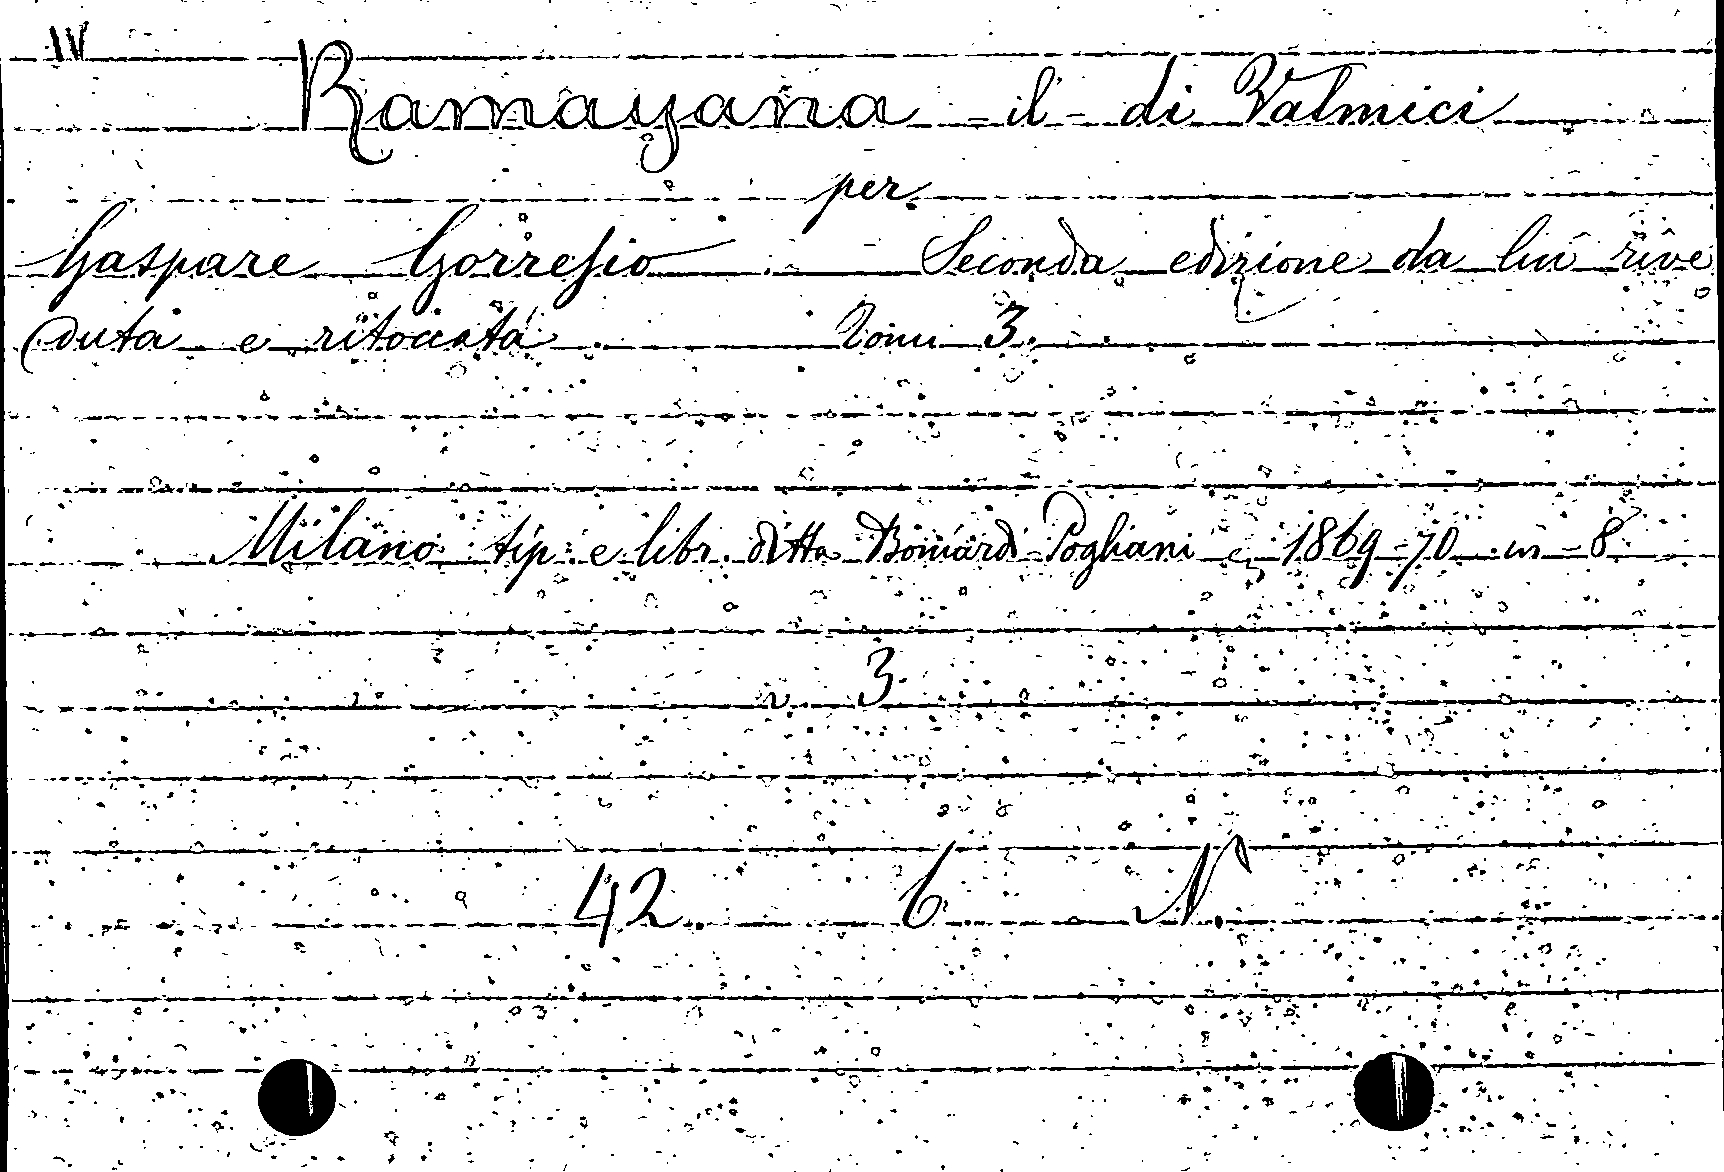 IV
Ramayana - il - di Valmici
per
Gaspare Gorresio Seconda edizione da lui rive
duta e ritoccata Tomi 3.
Milano tip. e libr. ditta Boniardi-Pogliani 1869-70 in-8
v. 3
42. 6. N.